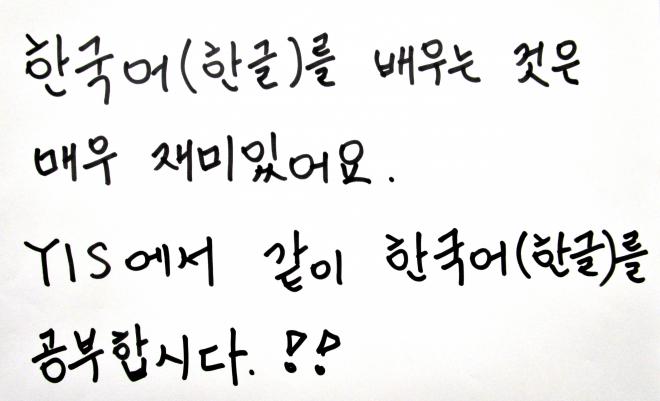 한국어(한글)를 배우는 것은
매우 재미있어요.
YIS에서 같이 한국어(한글)를
공부합시다. !!